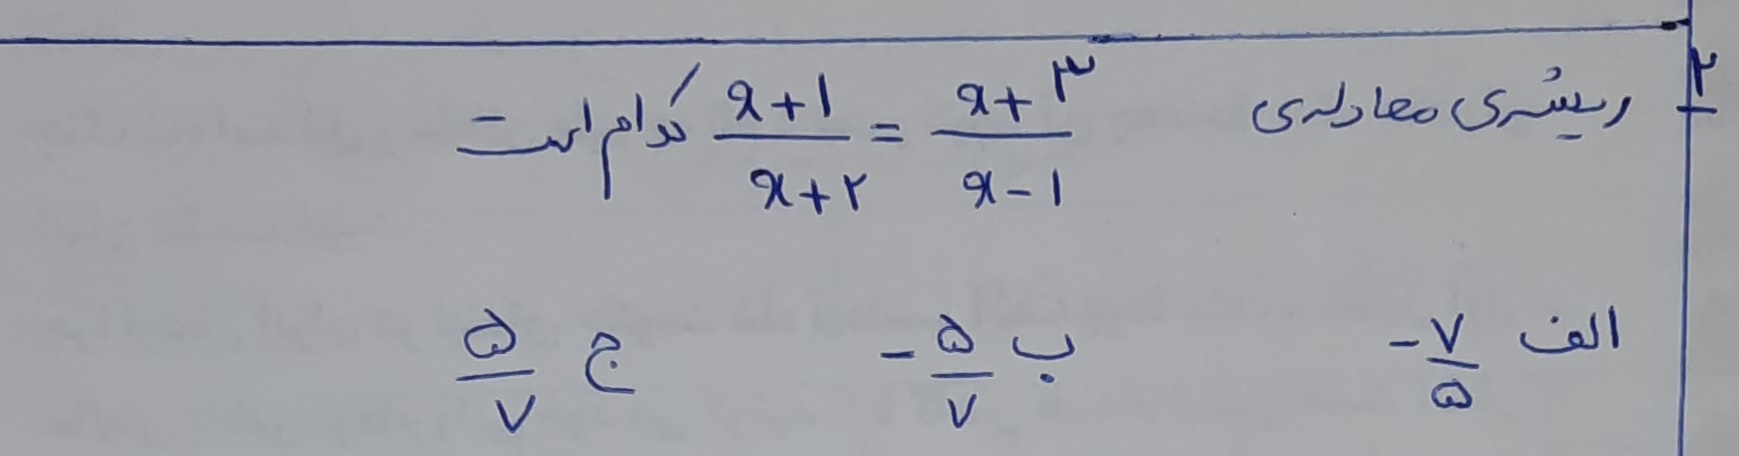 ۲ ریشه‌ی معادله‌ی (x+۳)/(x-۱) = (x+۱)/(x+۲) کدام است
الف -۷/۵ ب -۵/۷ ج ۵/۷